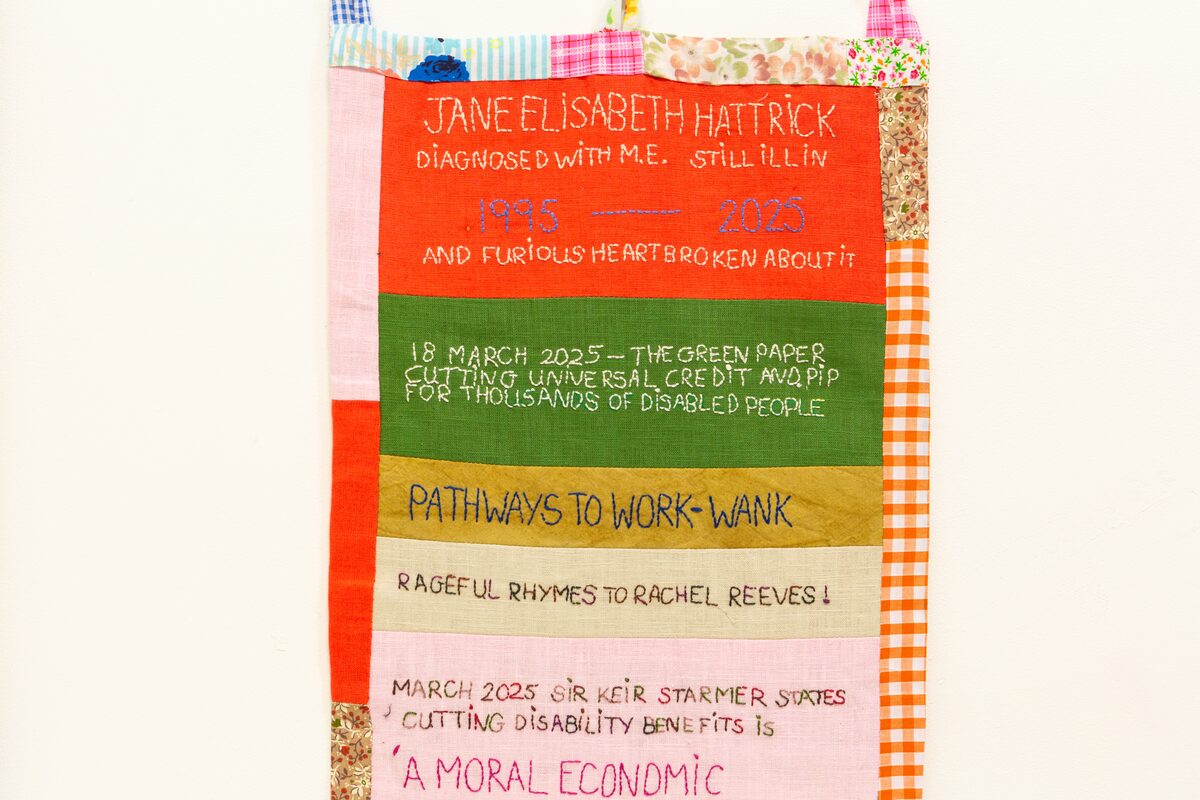 JANE ELISABETH HATTRICK
DIAGNOSED WITH M.E. STILL ILL IN
1995 — 2025
AND FURIOUS HEARTBROKEN ABOUT IT
18 MARCH 2025 — THE GREEN PAPER
CUTTING UNIVERSAL CREDIT AND PIP
FOR THOUSANDS OF DISABLED PEOPLE
PATHWAYS TO WORK-WANK
RAGEFUL RHYMES TO RACHEL REEVES!
MARCH 2025 SIR KEIR STARMER STATES
'CUTTING DISABILITY BENEFITS IS
'A MORAL ECONOMIC